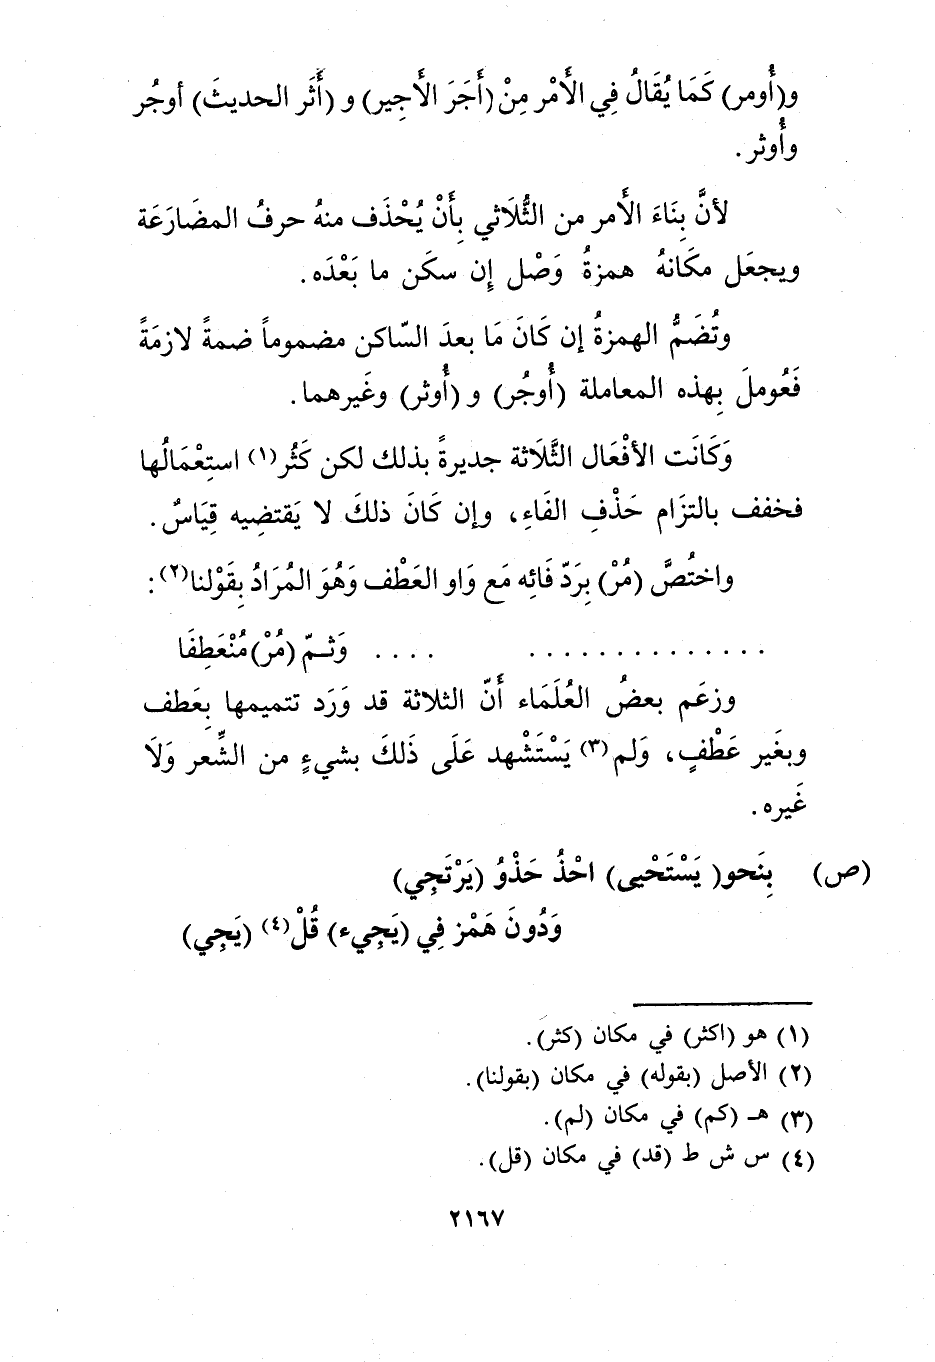 و(أُومر) كَمَا يُقَالُ فِي الأَمْر مِنْ (أَجَرَ الأَجِير) و (أَثَر الحديثَ) أوجُر
وأُوثر.
لأنَّ بِنَاءَ الأَمر من الثُّلَاثي بِأَنْ يُحْذَف منهُ حرفُ المضَارَعَة
ويجعَل مكَانهُ همزةُ وَصْل إِن سكَن ما بَعْدَه.
وتُضَمُّ الهمزةُ إن كَانَ مَا بعدَ السّاكن مضموماً ضمةً لازمَةً
فَعُوملَ بِهذه المعاملة (أُوجُر) و (أُوثر) وغَيرهما.
وَكَانَت الأفْعَال الثَّلَاثة جديرةً بذلك لكن كَثُر(١) استِعْمَالُها
فخفف بالتزَام حَذْفِ الفَاءِ، وإن كَانَ ذلكَ لا يَقتضِيه قِيَاسٌ.
واختُصَّ (مُرْ) بِرَدّ فَائه مَع وَاو العَطْف وَهُوَ المُرَادُ بِقَوْلنا(٢):
. . . . . . . . . . . . . . . . . . وَثَـمّ (مُرْ) مُنْعَطِفَا
وزعَم بعضُ العُلَمَاء أَنّ الثلاثة قد وَرَد تتميمها بِعَطف
وبغَير عَطْفٍ، وَلم(٣) يَسْتَشْهد عَلَى ذَلكَ بشيءٍ من الشِّعر وَلَا
غَيره.
(ص) بِنَحو( يَسْتَحْيى) احْذُ حَذْوُ (يَرْتَجِي)
وَدُونَ هَمْز فِي (يَجِيء) قُلْ(٤) (يَجِي)
(١) هو (اكثر) في مكان (كثر).
(٢) الأصل (بقوله) في مكان (بقولنا).
(٣) هـ (كم) في مكان (لم).
(٤) س ش ط (قد) في مكان (قل).
٢١٦٧